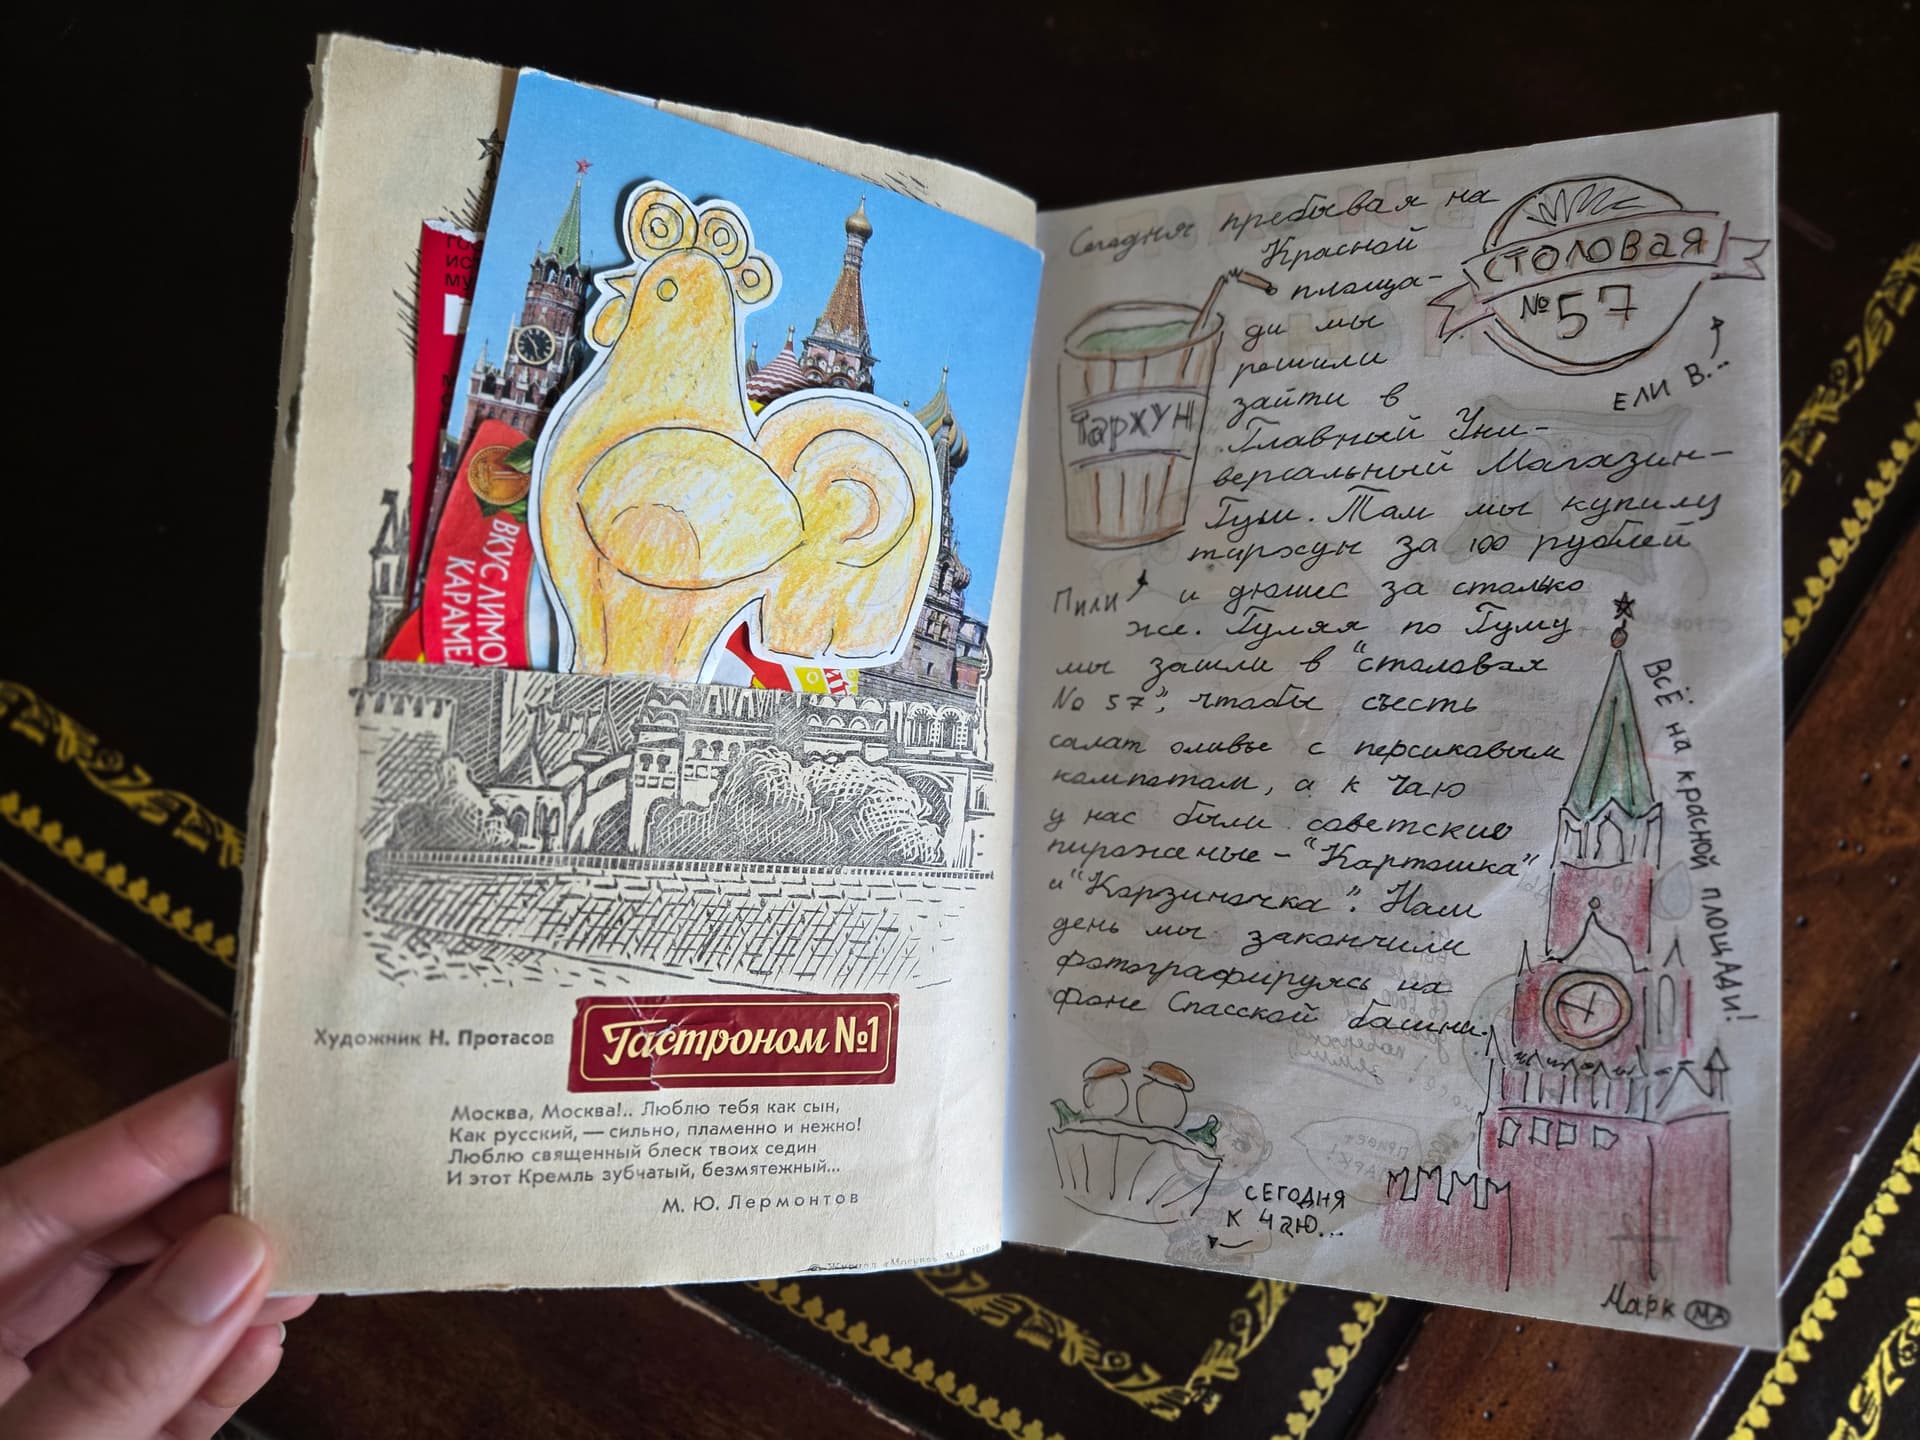 ВКУС ЛИМО
КАРАМЕ
Художник Н. Протасов
Гастроном №1
Москва, Москва!.. Люблю тебя как сын,
Как русский, — сильно, пламенно и нежно!
Люблю священный блеск твоих седин
И этот Кремль зубчатый, безмятежный...
М. Ю. Лермонтов
Сегодня пребывая на
Красной
площа-
ди мы
решили
зайти в
Главный Уни-
версальный Магазин-
Гум. Там мы купили
тархун за 100 рублей
и дюшес за столько
же. Гуляя по Гуму
мы зашли в "столовая
№ 57", чтобы съесть
салат оливье с персиковым
компотом, а к чаю
у нас были советские
пироженые - "Картошка"
и "Корзиночка". Наш
день мы закончили
фотографируясь на
фоне Спасской башни.
СТОЛОВАЯ
№57
ЕЛИ В...
Тархун
Пили
ВСЁ на красной площади!
СЕГОДНЯ
К ЧАЮ...
Марк МА